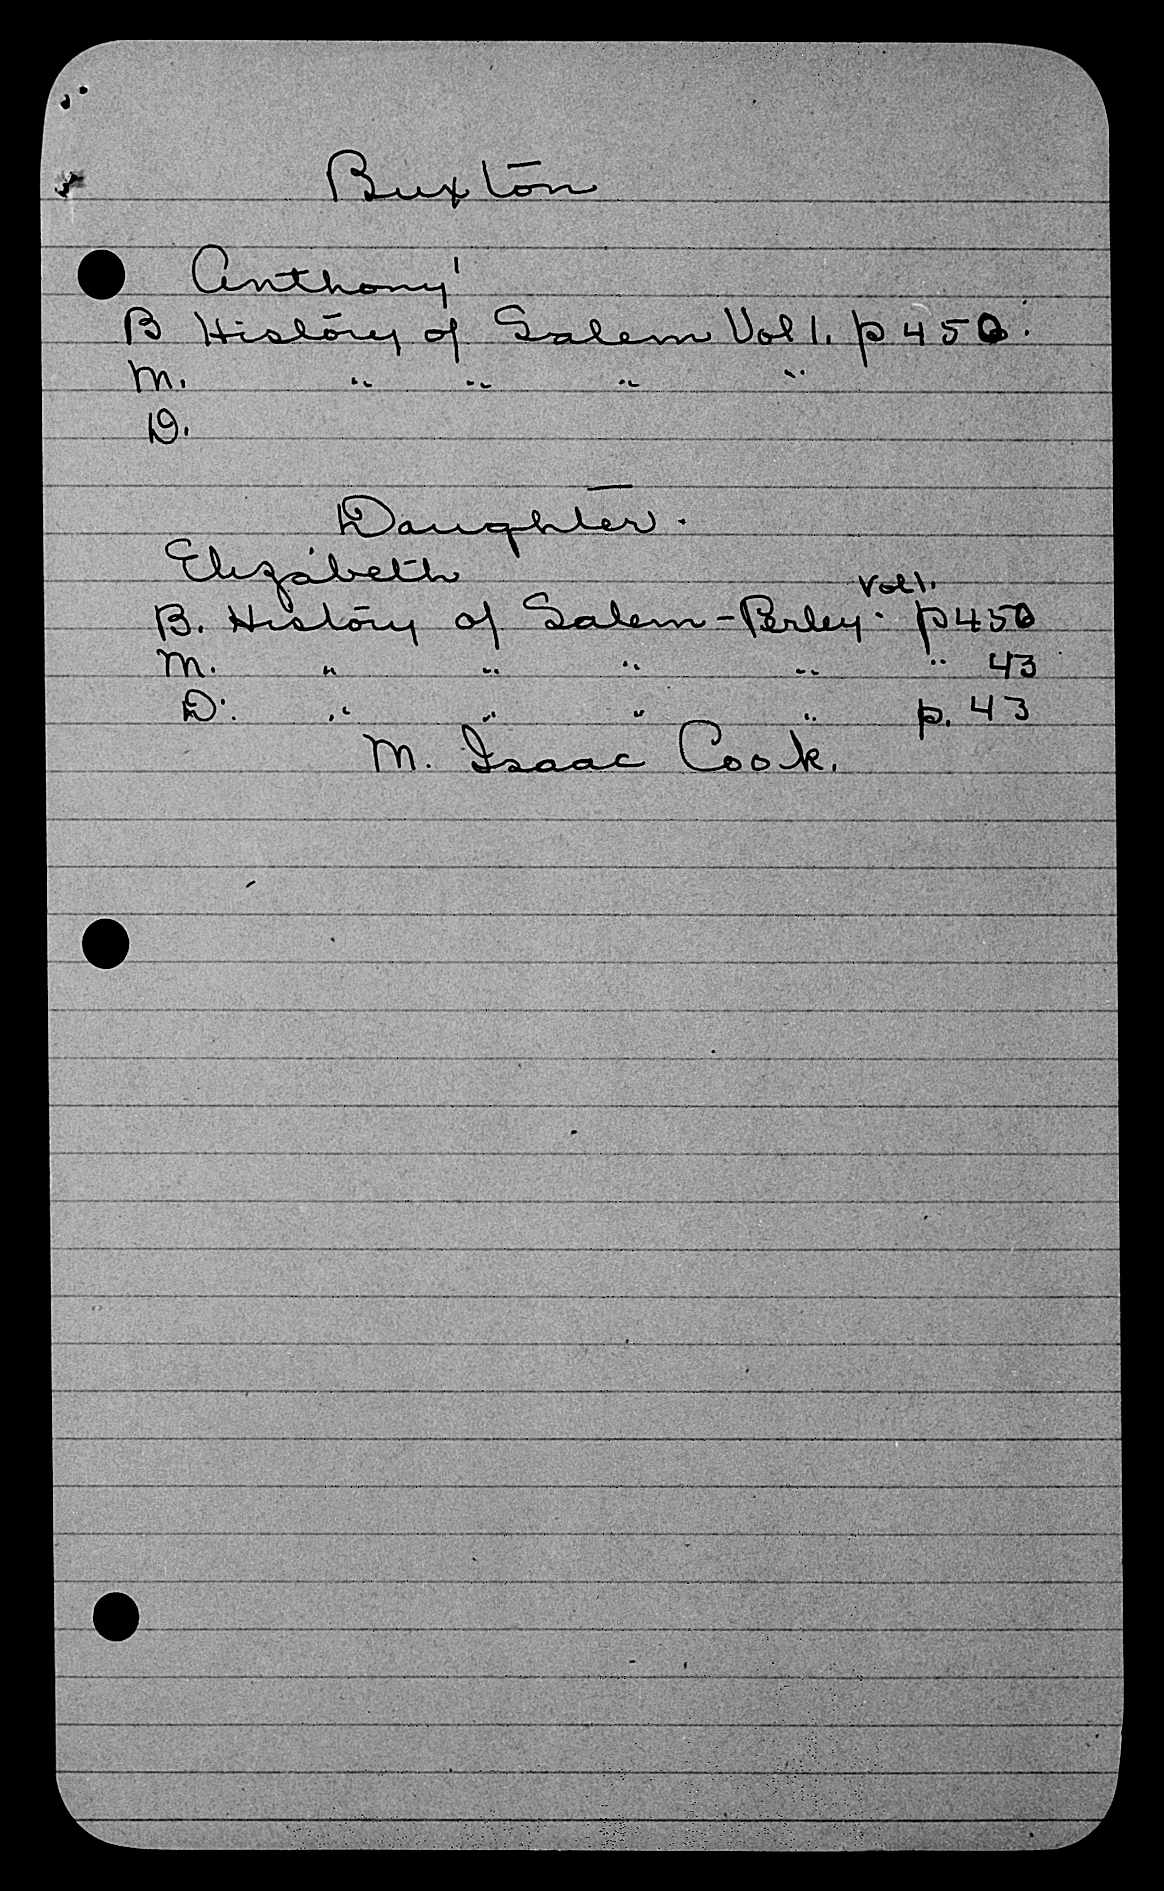 Buxton
Anthony¹
B History of Salem Vol 1. p 450.
M. " " " "
D.
Daughter.
Elizabeth
Vol 1.
B. History of Salem - Perley. p 450
M. " " " " " 43
D. " " " " p. 43
M. Isaac Cook.